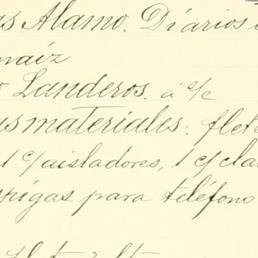 as Alamo. Diarios
maíz
Landeros. á s/c
us materiales: flet
1 c/ aisladores, 1 c/ cla
spigas para teléfono